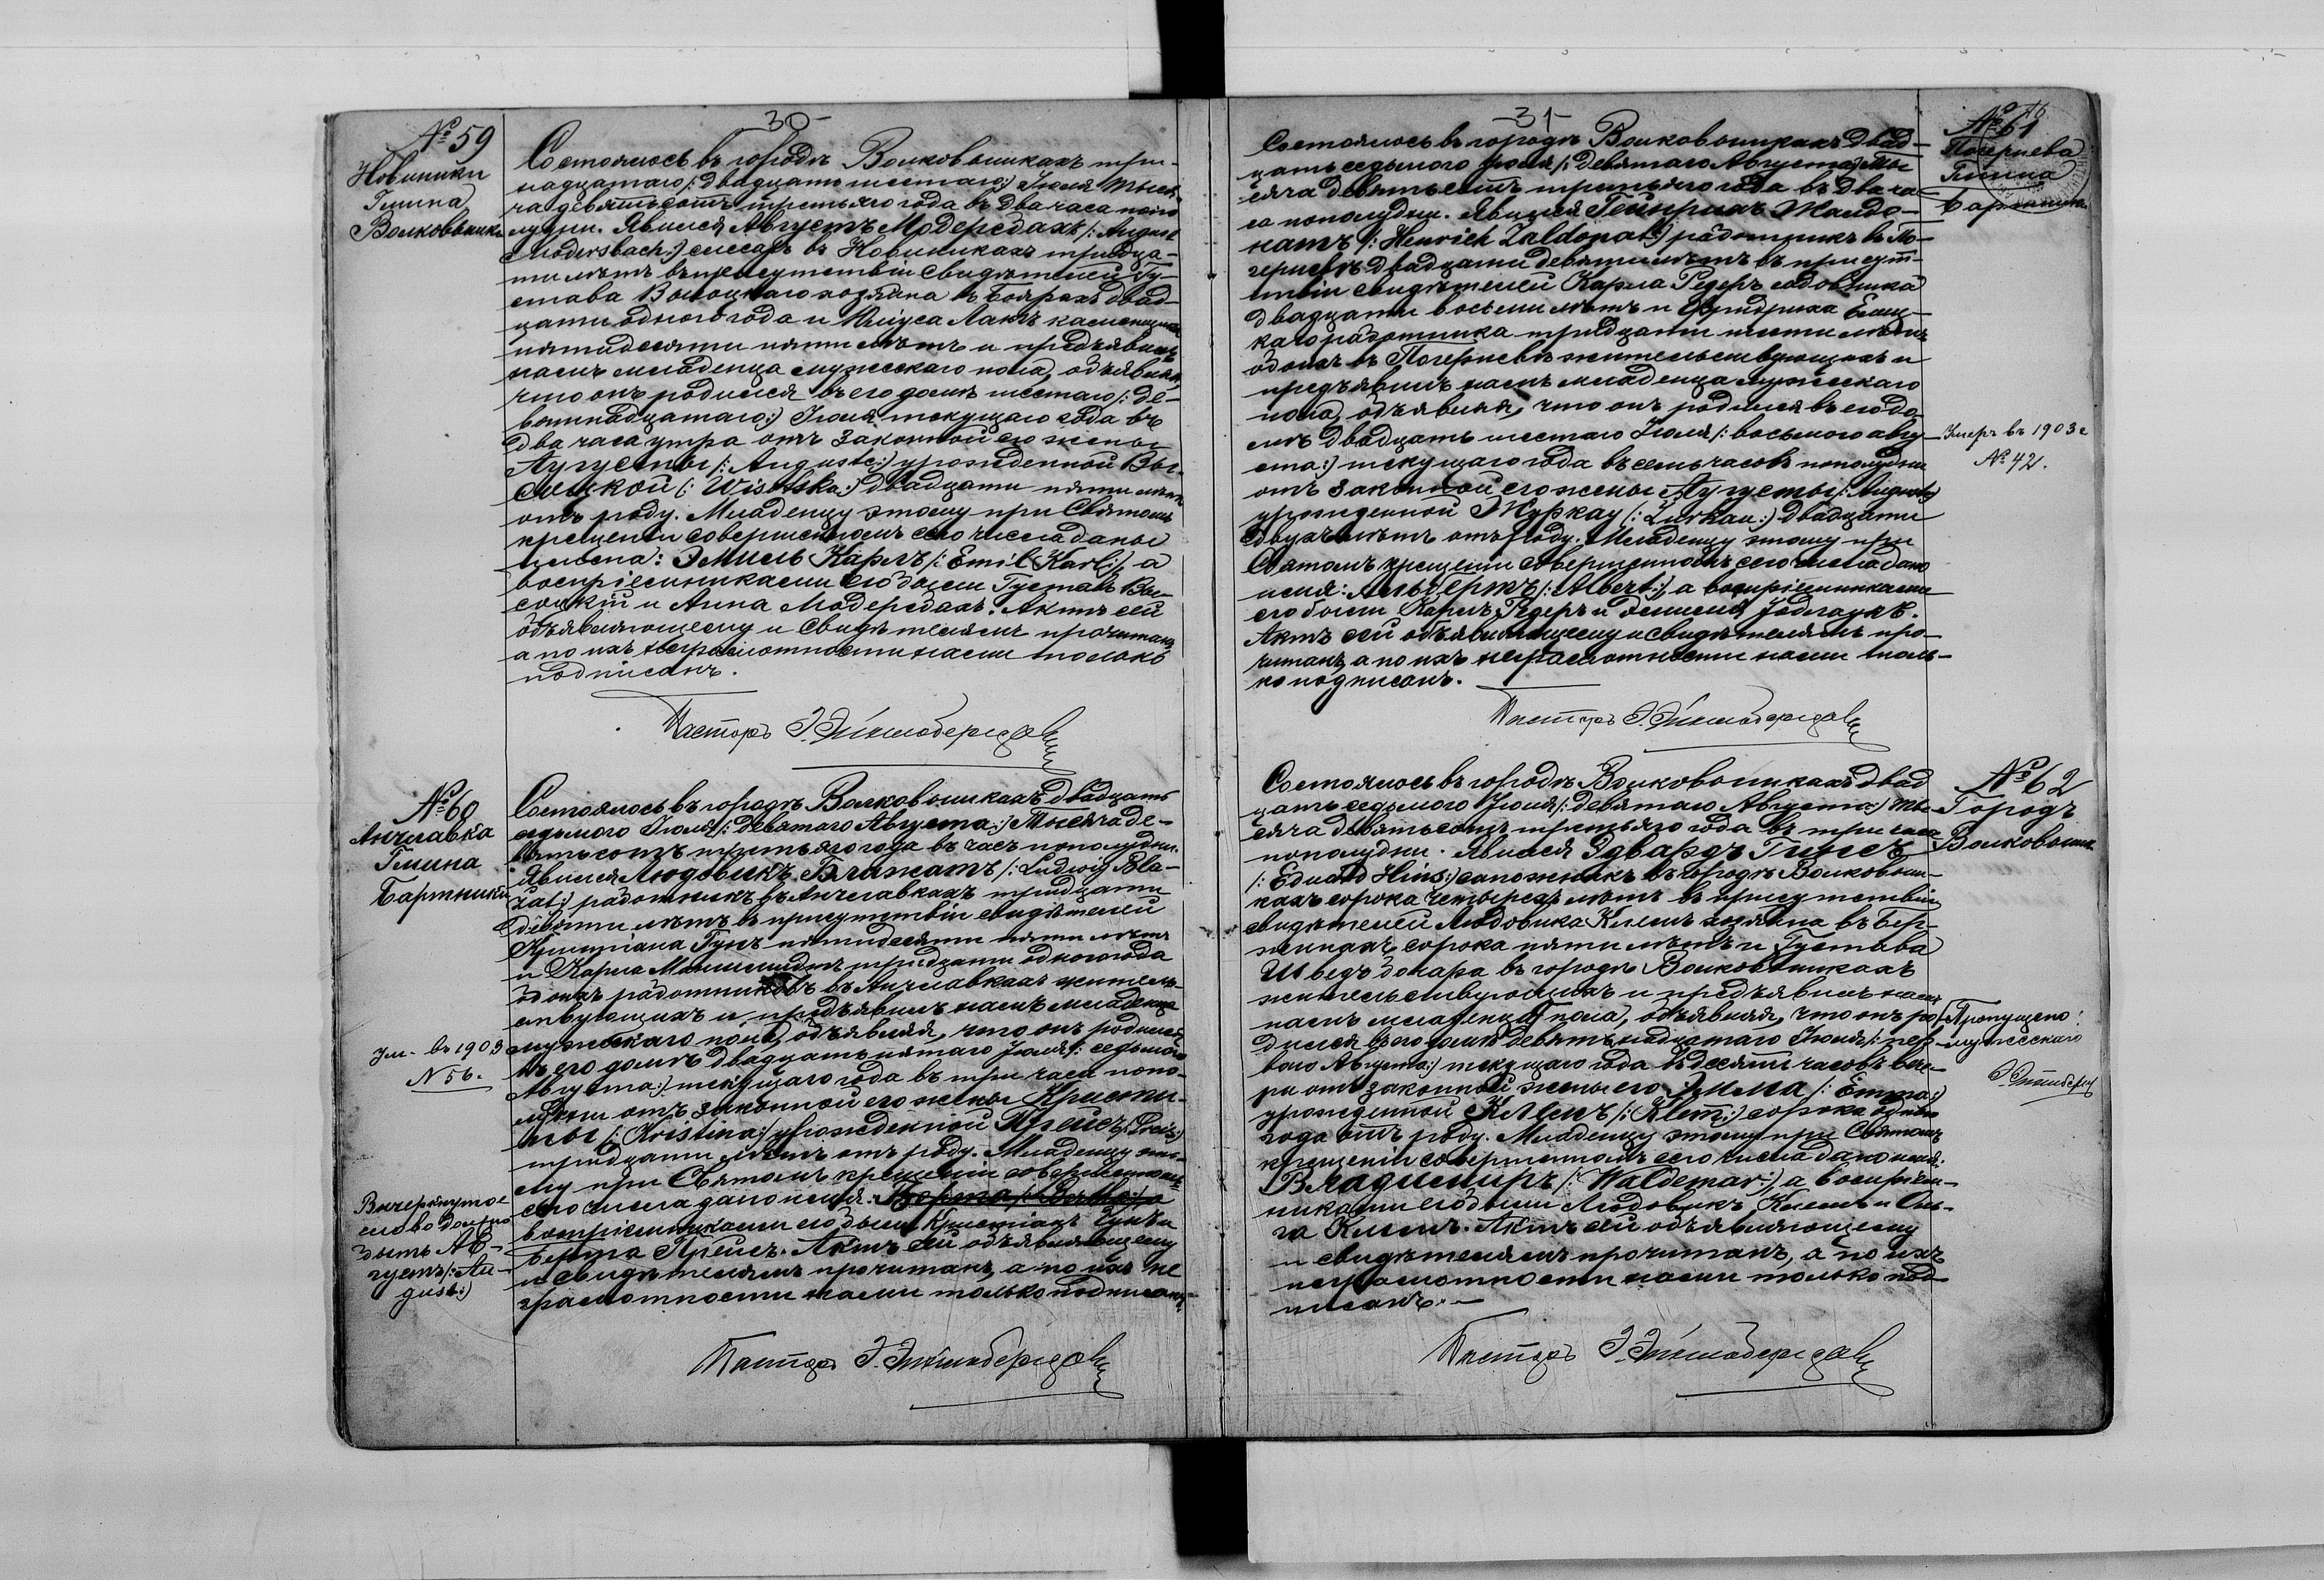 30
№ 59
Новиники
Гмина
Волковышки
Состоялось въ городѣ Волковышкахъ три-
надцатаго /: двадцать шестаго :/ Іюля тыся-
ча девятьсотъ третьяго года въ два часа попо-
лудни. Явился Августъ Модерсбахъ /: August
Modersbach :/ слесарь въ Новиникахъ тридца-
ти лѣтъ въ присутствіи свидѣтелей Гу-
става Высоцкаго хозяина въ Боярахъ двад-
цати одного года и Юліуса Лангъ каменщика
пятидесяти пяти лѣтъ и предъявилъ
намъ младенца мужескаго пола, объявляя,
что онъ родился въ его домѣ шестаго /: де-
вятнадцатаго :/ Іюля текущаго года въ
два часа утра отъ законной его жены
Аугусты /: Auguste :/ урожденной Вы-
соцкой /: Wisotska :/ двадцати пяти лѣтъ
отъ роду. Младенцу этому при Святомъ
крещеніи совершенномъ сего числа даны
имена: Эмиль Карлъ /: Emil Karl :/, а
воспріемниками его были Густавъ Вы-
соцкій и Анна Модерсбахъ. Актъ сей
объявляющему и свидѣтелямъ прочитанъ,
а по ихъ неграмотности нами только
подписанъ.
Пасторъ
№ 60
Анчлавка
Гмина
Бартники
Состоялось въ городѣ Волковышкахъ двадцать
седьмого Іюля /: девятаго Августа :/ Тысяча де-
вятьсотъ третьяго года въ часъ пополудни.
Явился Людовикъ Блажатъ /: Ludwig Bla-
żat :/ работникъ въ Анчлавкахъ тридцати
девяти лѣтъ въ присутствіи свидѣтелей
Христіана Гунъ пятидесяти пяти лѣтъ
и Карла тридцати одного года
обоихъ работниковъ въ Анчлавкахъ житель-
ствующихъ и предъявилъ намъ младенца
мужескаго пола, объявляя, что онъ родился
въ его домѣ двадцать пятаго Іюля /: седьмого
Августа :/ текущаго года въ три часа попо-
лудни отъ законной его жены Кристи-
ны /: Kristina :/ урожденной Прейсъ /: Preis :/
тридцати лѣтъ отъ роду. Младенцу это-
му при Святомъ крещеніи совершенномъ
сего числа дано имя: Берта /: Berta :/ а
воспріемниками его были Христіанъ Гунъ и
Берта Прейсъ. Актъ сей объявляющему
и свидѣтелямъ прочитанъ, а по ихъ не
грамотности нами только подписанъ.
Ум. въ 1903
N 56.
Вычеркнутое
слово должно
быть Ав-
густъ /: Au-
gust :/
Пасторъ
31
№ 61
Погернева
Гмина
Бартники
Состоялось въ городѣ Волковышкахъ двад-
цать седьмого Іюля /: девятаго Августа :/ Ты-
сяча девятьсотъ третьяго года въ два ча-
са пополудни. Явился Гейнрихъ Жалдо-
натъ /: Heinrich Zaldonat :/ работникъ въ По-
герневѣ двадцати девяти лѣтъ въ присут-
ствіи свидѣтелей Карла Редеръ садовника
двадцати восьми лѣтъ и Фридриха
каго работника тридцати шести лѣтъ
обоихъ въ Погерневѣ жительствующихъ и
предъявилъ намъ младенца мужескаго
пола, объявляя, что онъ родился въ его до-
мѣ двадцать шестаго Іюля /: восьмого авгу-
ста :/ текущаго года въ семь часовъ пополудни
отъ законной его жены Аугусты /: Auguste :/
урожденной Журкау /: Zurkau :/ двадцати
двухъ лѣтъ отъ роду. Младенцу этому при
Святомъ крещеніи совершенномъ сего числа дано
имя: Альбертъ /: Albert :/, а воспріемниками
его были Карлъ Редеръ и Эмилія
Актъ сей объявляющему и свидѣтелямъ про-
читанъ, а по ихъ неграмотности нами толь-
ко подписанъ.
Умеръ въ 1903 г
№ 42.
Пасторъ
№ 62
Городъ
Волковышки
Состоялось въ городѣ Волковышкахъ двад
цать седьмого Іюля /: девятаго Августа :/ Ты-
сяча девятьсотъ третьяго года въ три часа
пополудни. Явился Эдвардъ Гинсъ
/: Eduard Hins :/ сапожникъ въ городѣ Волковыш-
кахъ сорока четырехъ лѣтъ въ присутствіи
свидѣтелей Людовика Клемъ хозяина въ Бер-
жинахъ сорока пяти лѣтъ и Густава
Шведъ въ городѣ Волковышкахъ
жительствующихъ и предъявилъ намъ
намъ младенца пола, объявляя, что онъ ро-
дился въ его домѣ девятьнадцатаго Іюля /: пер-
ваго Августа :/ текущаго года въ десять часовъ вече-
ра отъ законной жены его Эмма /: Emma :/
урожденной Клемъ /: Klem :/ сорока одного
года отъ роду. Младенцу этому при Святомъ
крещеніи совершенномъ сего числа дано имя:
Владимиръ /: Waldemar :/, а воспріем-
никами его были Людовикъ Клемъ и Оль-
га Клемъ. Актъ сей объявляющему
и свидѣтелямъ прочитанъ, а по ихъ
неграмотности нами только под-
писанъ. —
Пропущено:
мужескаго
Пасторъ